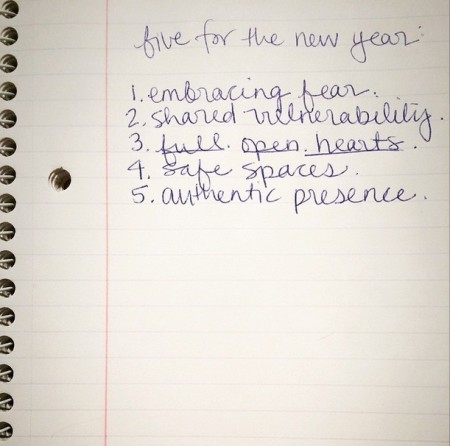 five for the new year:
1. embracing fear.
2. shared vulnerability.
3. full. open. hearts.
4. safe spaces.
5. authentic presence.